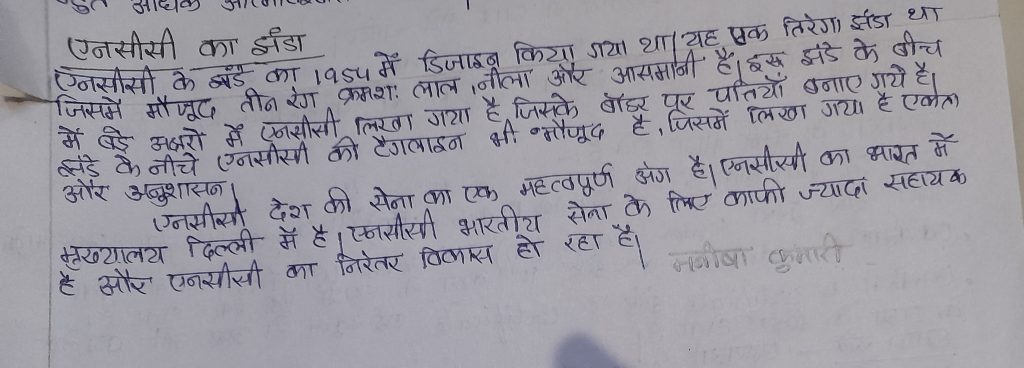 एनसीसी का झंडा
एनसीसी के झंडे का 1954 में डिजाइन किया गया था। यह एक तिरंगा झंडा था
जिसमें मौजूद तीन रंग क्रमशः लाल, नीला और आसमानी है। इस झंडे के बीच
में बड़े अक्षरों में एनसीसी लिखा गया है जिसके बॉर्डर पर पत्तियाँ बनाए गये है।
झंडे के नीचे एनसीसी की टैगलाइन भी मौजूद है, जिसमें लिखा गया है एकता
और अनुशासन।
एनसीसी देश की सेना का एक महत्वपूर्ण अंग है। एनसीसी का भारत में
मुख्यालय दिल्ली में है। एनसीसी भारतीय सेना के लिए काफी ज्यादा सहायक
है और एनसीसी का निरंतर विकास हो रहा है।
मनीषा कुमारी